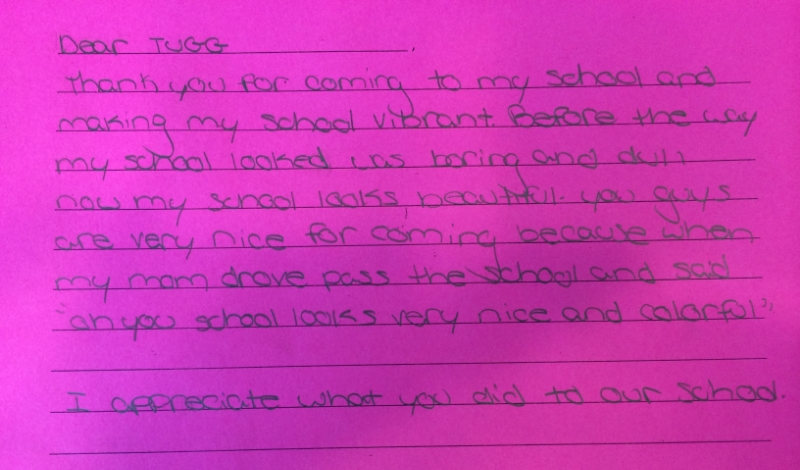 Dear TUGG
Thank you for coming to my school and
making my school vibrant. Before the way
my school looked was boring and dull
now my school looks beautiful. you guys
are very nice for coming because when
my mom drove pass the school and said
"oh you school looks very nice and colorful",
I appreciate what you did to our school.